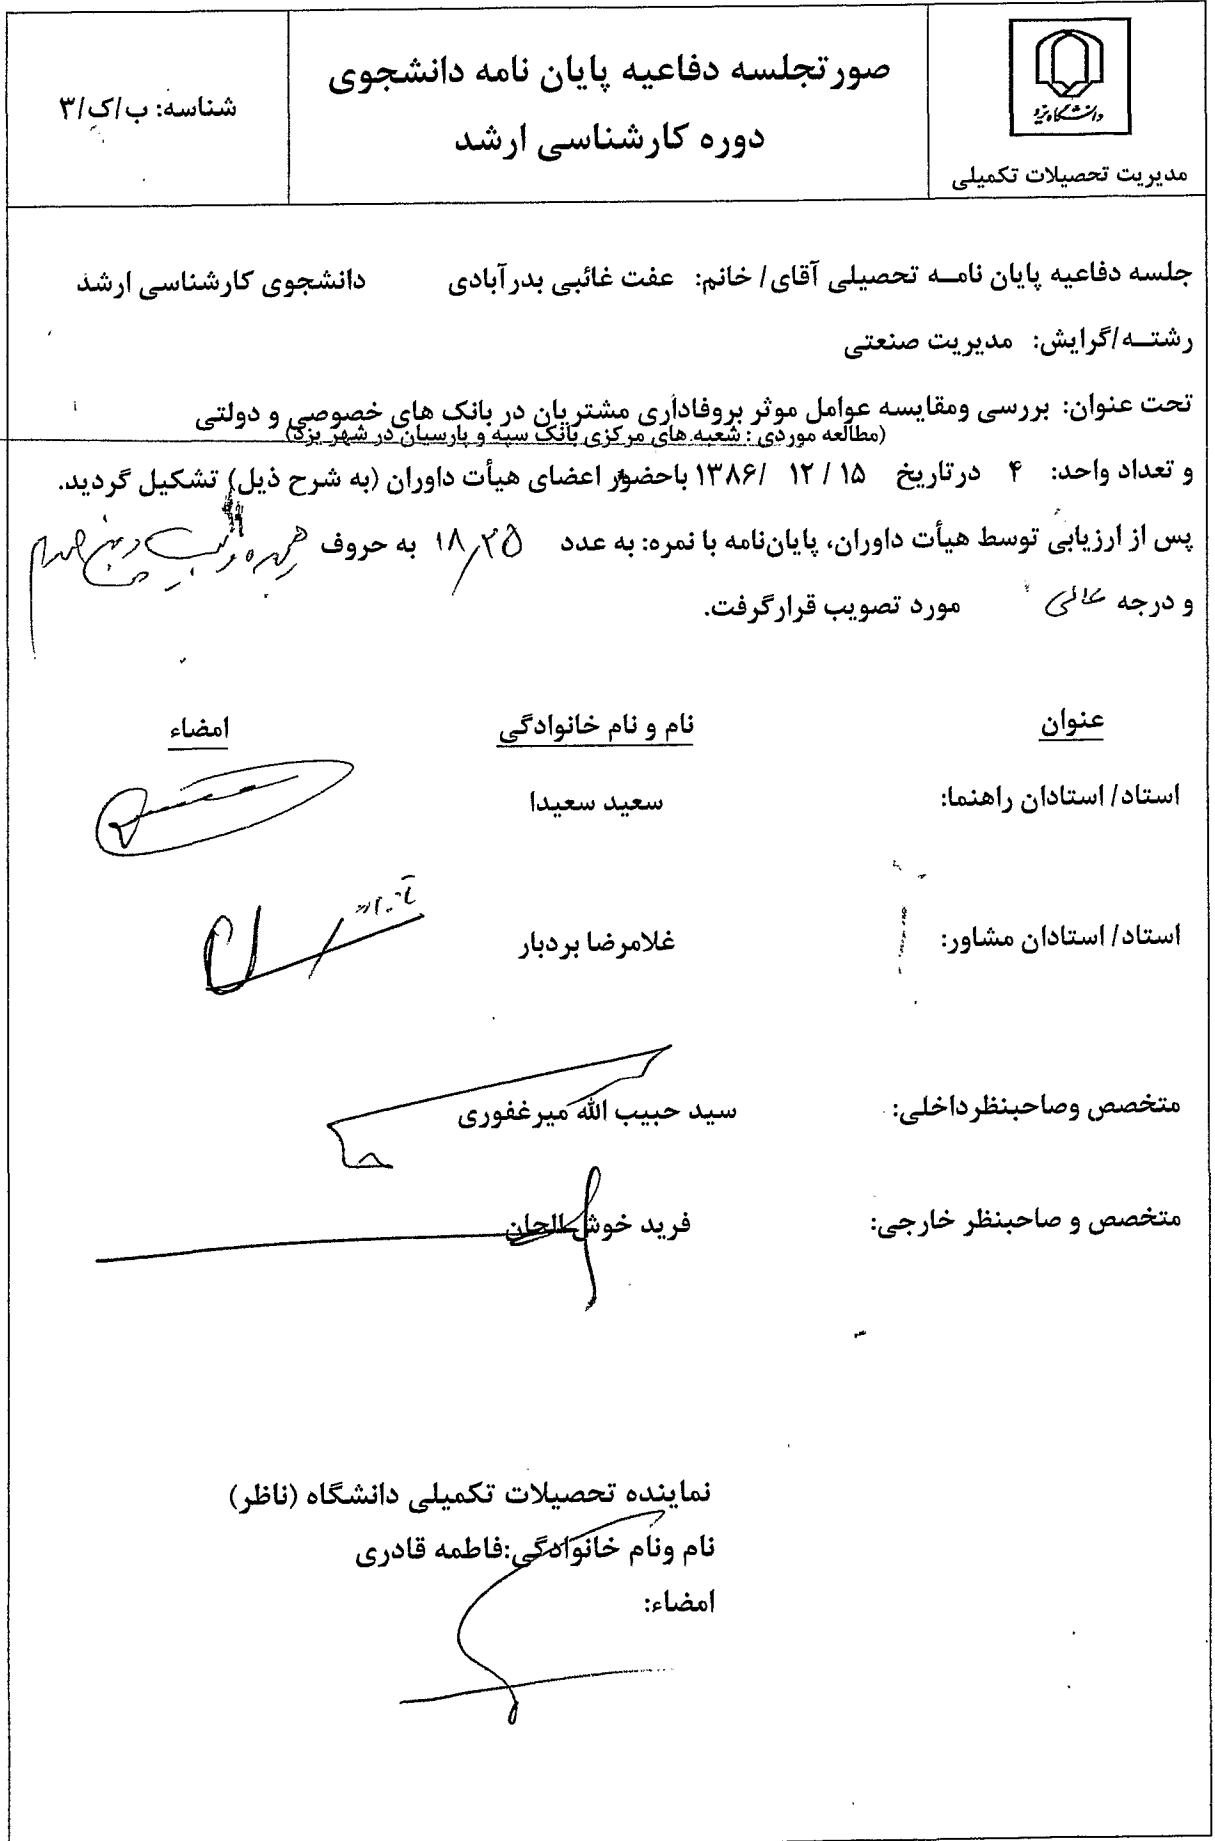 دانشگاه یزد
مدیریت تحصیلات تکمیلی
صورتجلسه دفاعیه پایان نامه دانشجوی
دوره کارشناسی ارشد
شناسه: ب/ک/۳
جلسه دفاعیه پایان نامـه تحصیلی آقای/ خانم: عفت غائبی بدرآبادی دانشجوی کارشناسی ارشد
رشتـه/گرایش: مدیریت صنعتی
تحت عنوان: بررسی ومقایسه عوامل موثر بروفاداری مشتریان در بانک های خصوصی و دولتی
(مطالعه موردی : شعبه های مرکزی بانک سپه و پارسیان در شهر یزد)
و تعداد واحد: ۴ درتاریخ ۱۵ / ۱۲ /۱۳۸۶ باحضور اعضای هیأت داوران (به شرح ذیل) تشکیل گردید.
پس از ارزیابی توسط هیأت داوران، پایان‌نامه با نمره: به عدد ۱۸٫۲۵ به حروف هیجده و بیست و پنج صدم
و درجه عالی مورد تصویب قرارگرفت.
عنوان نام و نام خانوادگی امضاء
استاد/ استادان راهنما: سعید سعیدا
استاد/ استادان مشاور: غلامرضا بردبار
متخصص وصاحبنظرداخلی: سید حبیب الله میرغفوری
متخصص و صاحبنظر خارجی: فرید خوش الحان
نماینده تحصیلات تکمیلی دانشگاه (ناظر)
نام ونام خانوادگی:فاطمه قادری
امضاء: